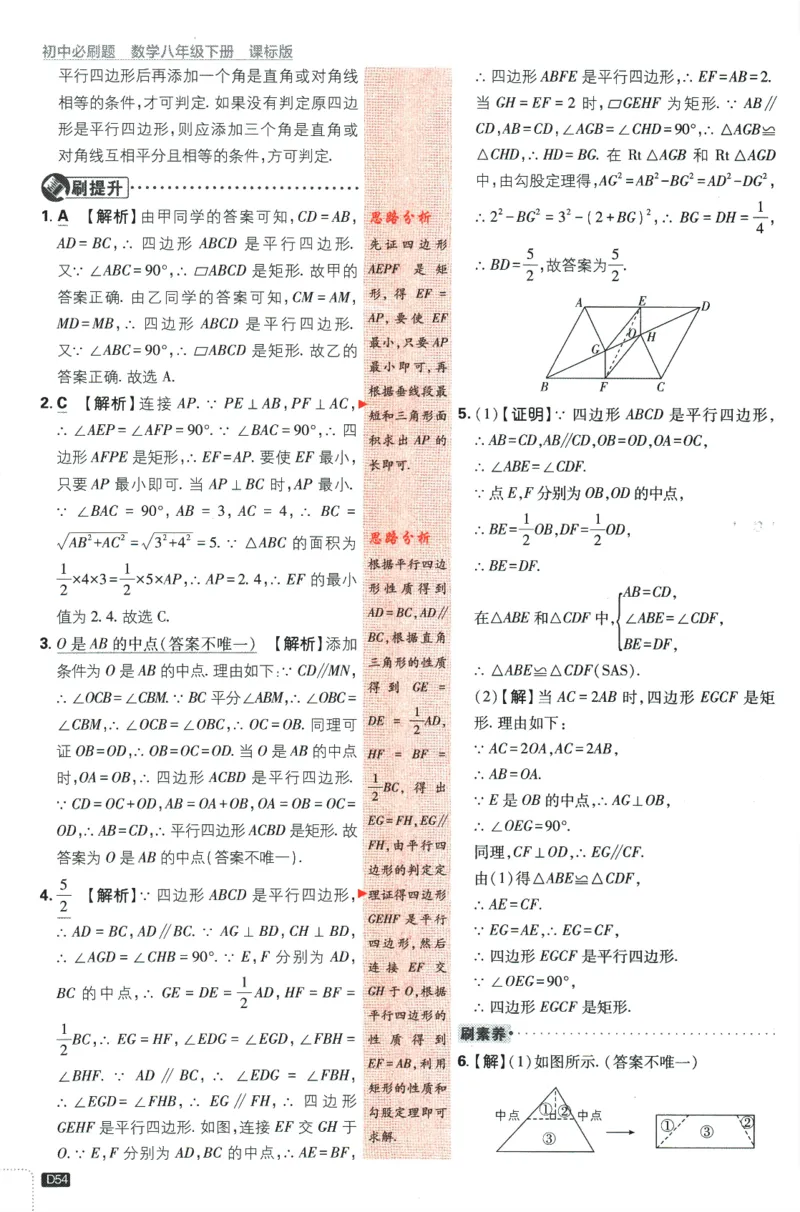 初中必刷题 数学八年级下册 课标版
平行四边形后再添加一个角是直角或对角线
相等的条件,才可判定. 如果没有判定原四边
形是平行四边形,则应添加三个角是直角或
对角线互相平分且相等的条件,方可判定.
刷提升
1. A 【解析】由甲同学的答案可知,CD=AB,
AD=BC,∴ 四边形 ABCD 是平行四边形.
又∵ ∠ABC=90°,∴ ▱ABCD 是矩形. 故甲的
答案正确. 由乙同学的答案可知,CM=AM,
MD=MB,∴ 四边形 ABCD 是平行四边形.
又∵ ∠ABC=90°,∴ ▱ABCD 是矩形. 故乙的
答案正确. 故选 A.
2. C 【解析】连接 AP. ∵ PE⊥AB,PF⊥AC,
∴ ∠AEP=∠AFP=90°. ∵ ∠BAC=90°,∴ 四
边形 AFPE 是矩形,∴ EF=AP. 要使 EF 最小,
只要 AP 最小即可. 当 AP⊥BC 时,AP 最小.
∵ ∠BAC = 90°, AB = 3, AC = 4, ∴ BC =
√(AB²+AC²)=√(3²+4²)=5. ∵ △ABC 的面积为
1/2×4×3=1/2×5×AP,∴ AP=2.4,∴ EF 的最小
值为 2.4. 故选 C.
3. O 是 AB 的中点(答案不唯一) 【解析】添加
条件为 O 是 AB 的中点. 理由如下:∵ CD∥MN,
∴ ∠OCB=∠CBM. ∵ BC 平分∠ABM,∴ ∠OBC=
∠CBM,∴ ∠OCB=∠OBC,∴ OC=OB. 同理可
证 OB=OD,∴ OB=OC=OD. 当 O 是 AB 的中点
时,OA=OB,∴ 四边形 ACBD 是平行四边形.
∵ CD=OC+OD,AB=OA+OB,OA=OB=OC=
OD,∴ AB=CD,∴ 平行四边形 ACBD 是矩形. 故
答案为 O 是 AB 的中点(答案不唯一).
4. 5/2 【解析】∵ 四边形 ABCD 是平行四边形,
∴ AD=BC,AD∥BC. ∵ AG⊥BD,CH⊥BD,
∴ ∠AGD=∠CHB=90°. ∵ E,F 分别为 AD,
BC 的中点,∴ GE=DE=1/2AD,HF=BF=
1/2BC,∴ EG=HF,∠EDG=∠EGD,∠FBH=
∠BHF. ∵ AD∥BC, ∴ ∠EDG = ∠FBH,
∴ ∠EGD=∠FHB,∴ EG∥FH,∴ 四边形
GEHF 是平行四边形. 如图,连接 EF 交 GH 于
O. ∵ E,F 分别为 AD,BC 的中点,∴ AE=BF,
D54
思路分析
先证四边形
AEPF 是矩
形,得 EF=
AP,要使 EF
最小,只要 AP
最小即可,再
根据垂线段最
短和三角形面
积求出 AP 的
长即可.
思路分析
根据平行四边
形性质得到
AD=BC,AD∥
BC,根据直角
三角形的性质
得到 GE=
DE=1/2AD,
HF=BF=
1/2BC,得出
EG=FH,EG∥
FH,由平行四
边形的判定定
理证得四边形
GEHF 是平行
四边形,然后
连接 EF 交
GH 于 O,根据
平行四边形的
性质得到
EF=AB,利用
矩形的性质和
勾股定理即可
求解.
∴ 四边形 ABFE 是平行四边形,∴ EF=AB=2.
当 GH=EF=2 时,▱GEHF 为矩形. ∵ AB∥
CD,AB=CD,∠AGB=∠CHD=90°,∴ △AGB≌
△CHD,∴ HD=BG. 在 Rt△AGB 和 Rt△AGD
中,由勾股定理得,AG²=AB²-BG²=AD²-DG²,
∴ 2²-BG²=3²-(2+BG)²,∴ BG=DH=1/4,
∴ BD=5/2,故答案为5/2.
A E D
O H
G
B F C
5. (1)【证明】∵ 四边形 ABCD 是平行四边形,
∴ AB=CD,AB∥CD,OB=OD,OA=OC,
∴ ∠ABE=∠CDF.
∵ 点 E,F 分别为 OB,OD 的中点,
∴ BE=1/2OB,DF=1/2OD,
∴ BE=DF.
AB=CD,
在△ABE 和△CDF 中,{∠ABE=∠CDF,
BE=DF,
∴ △ABE≌△CDF(SAS).
(2)【解】当 AC=2AB 时,四边形 EGCF 是矩
形. 理由如下:
∵ AC=2OA,AC=2AB,
∴ AB=OA.
∵ E 是 OB 的中点,∴ AG⊥OB,
∴ ∠OEG=90°.
同理,CF⊥OD,∴ EG∥CF.
由(1)得△ABE≌△CDF,
∴ AE=CF.
∵ EG=AE,∴ EG=CF,
∴ 四边形 EGCF 是平行四边形.
∵ ∠OEG=90°,
∴ 四边形 EGCF 是矩形.
刷素养
6. 【解】(1)如图所示. (答案不唯一)
中点 ① ② 中点
③
① ③ ②